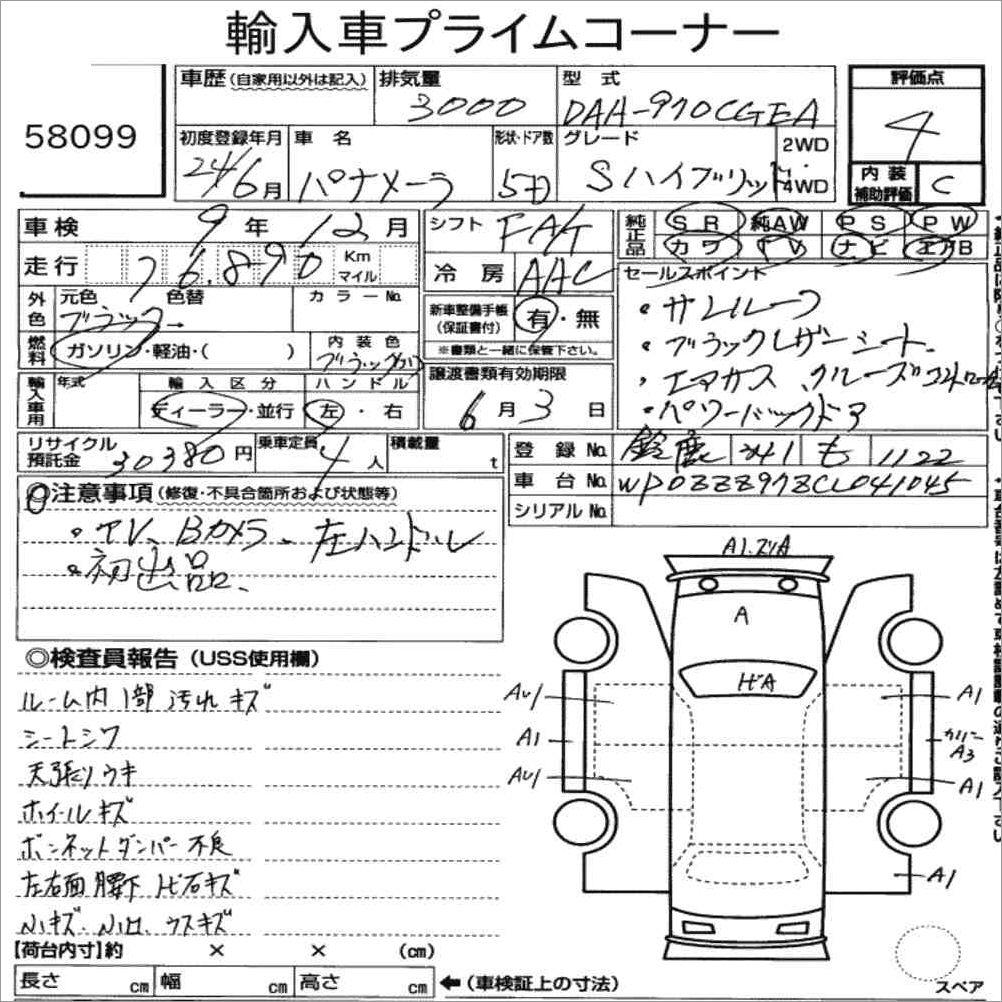 輸入車プライムコーナー
58099
車歴(自家用以外は記入)
排気量
3000
型式
DAA-970CGEA
評価点
4
初度登録年月
24/6月
車名
パナメーラ
形状・ドア数
5D
グレード
Sハイブリッド
2WD
4WD
内装補助評価
C
車検 9年12月
シフト FAT
純正品
SR 純AW PS PW
カワ TV ナビ エアB
走行 76,890 Km マイル
冷房 AAC
セールスポイント
・サンルーフ
・ブラックレザーシート
・エアサス クルーズコントロール
・パワーバックドア
外色
元色 色替
ブラック→
カラーNo.
新車整備手帳(保証書付)
有・無
※書類と一緒に保管下さい。
燃料
ガソリン・軽油・( )
内装色
ブラック
輸入車用
年式
輸入区分
ディーラー・並行
ハンドル
左・右
譲渡書類有効期限
6月3日
リサイクル預託金 30380円
乗車定員 4人
積載量 t
登録No. 鈴鹿 341 も 1122
車台No. WP0ZZZ97ZCL041045
シリアルNo.
◎注意事項(修復・不具合箇所および状態等)
・TV、Bカメラ、左ハンドル
・初出品、
◎検査員報告(USS使用欄)
ルーム内1部汚れキズ
シートシワ
天張りウキ
ホイールキズ
ボンネットダンパー不良
左右面腰下ト゛ビ石キズ
小キズ、小凹、ウスキズ
A1.スリA
A
トビA
AU1
A1
AU1
A1
カバー
A3
A1
A1
スペア
【荷台内寸】約 × × (cm)
長さ cm 幅 cm 高さ cm
←(車検証上の寸法)